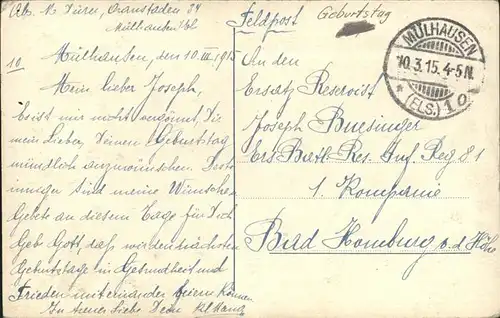 Abs. M. Dürr, Oranstaden 34
Mülhausen Els.
Feldpost
Geburtstag
MÜLHAUSEN
10.3.15. 4-5N.
* (ELS.) 1 o
10
Mülhausen, den 10.III.1915
Mein lieber Joseph,
Es ist mir nicht vergönnt, Dir
mein Lieber, Deinen Geburtstag
mündlich anzuwünschen. Desto
inniger sind meine Wünsche &
Gebete an diesem Tage für Dich
Geb Gott, daß wir den nächsten
Geburtstag in Gesundheit und
Frieden untereinander feiern können.
In treuer Liebe Dein
An den
Ersatz Reservist
Joseph Buesinger
Ers. Batl. Res. Inf. Reg 81
1. Kompanie
Bad Homburg v. d. Höhe